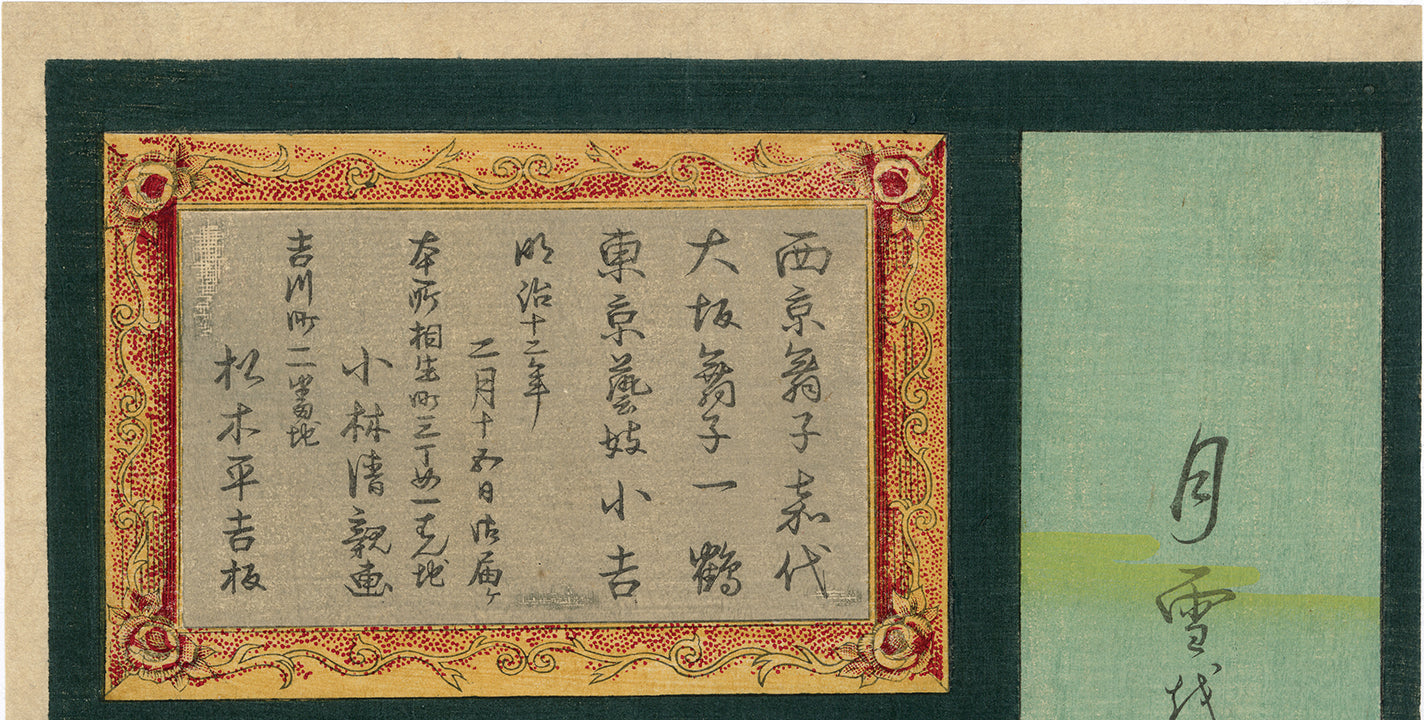 西京舞子嘉代
大坂舞子一鶴
東京藝妓小吉
明治十二年
二月十五日御届ケ
本所相生町三丁目一番地
小林清親画
吉川町二番地
松木平吉板
月雪